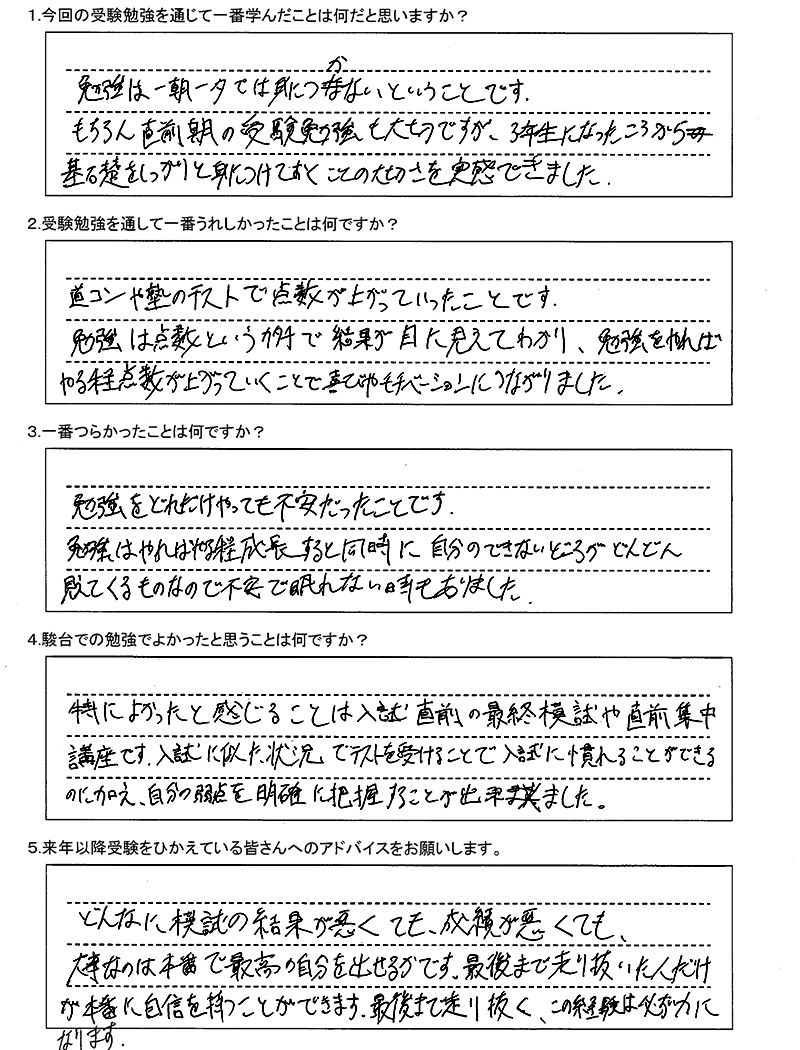 1.今回の受験勉強を通じて一番学んだことは何だと思いますか？
勉強は一朝一夕では身につかないということです.
もちろん直前期の受験勉強も大切ですが、3年生になったころから
基礎をしっかりと身につけておくことの大切さを実感できました.
2.受験勉強を通して一番うれしかったことは何ですか？
道コンや塾のテストで点数が上がっていったことです.
勉強は点数というカタチで結果が目に見えてわかり、勉強をやれば
やる程点数が上がっていくことで喜びやモチベーションにつながりました.
3.一番つらかったことは何ですか？
勉強をどれだけやっても不安だったことです.
勉強はやればやる程成長すると同時に自分のできないところがどんどん
見えてくるものなので不安で眠れない時もありました.
4.駿台での勉強でよかったと思うことは何ですか？
特によかったと感じることは入試直前の最終模試や直前集中
講座です.入試に似た状況でテストを受けることで入試に慣れることができる
のに加え、自分の弱点を明確に把握することが出来ました。
5.来年以降受験をひかえている皆さんへのアドバイスをお願いします。
どんなに、模試の結果が悪くても、成績が悪くても、
大事なのは本番で最高の自分を出せるかです.最後まで走り抜いた人だけ
が本番に自信を持つことができます.最後まで走り抜く、この経験は必ず力に
なります.